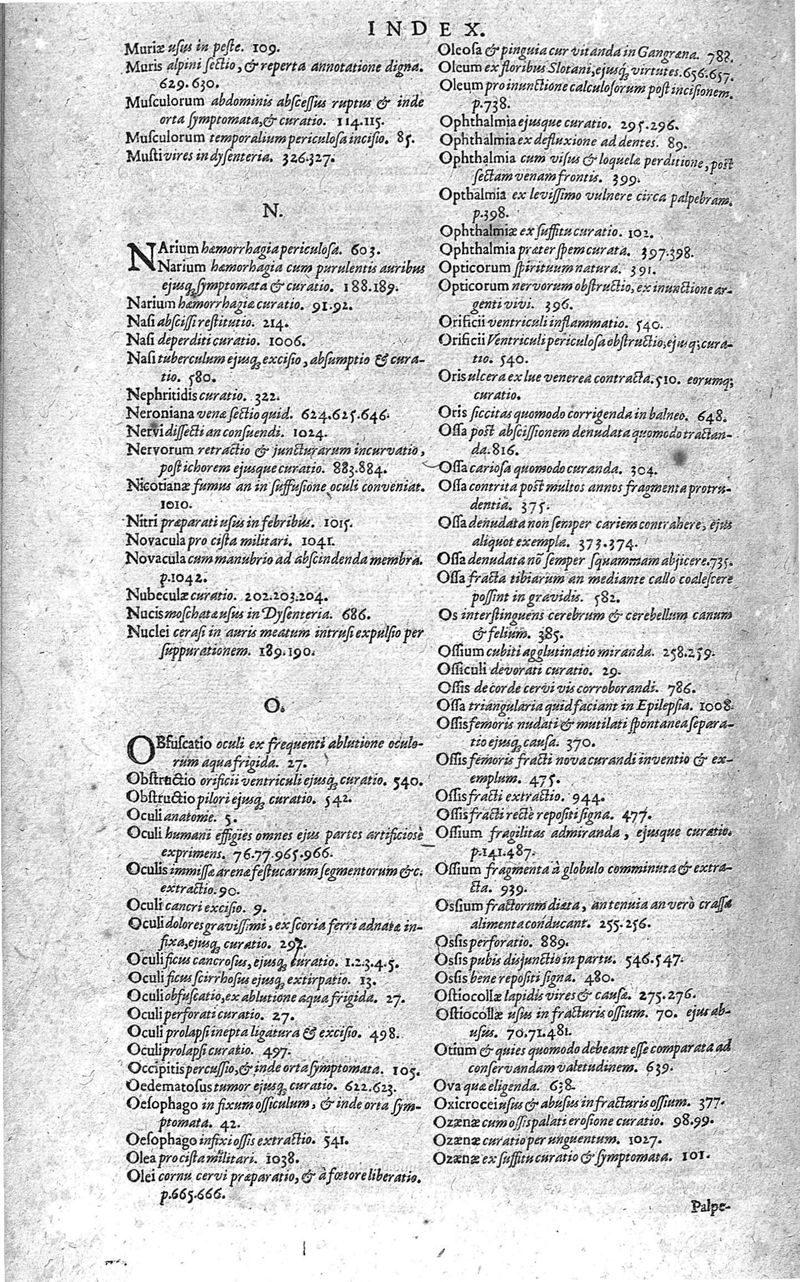 INDEX.
Muriæ usus in peste. 109.
Muris alpini sectio, & reperta annotatione digna.
629.630.
Musculorum abdominis abscessus ruptus & inde
orta symptomata, & curatio. 114.115.
Musculorum temporalium periculosa incisio. 85.
Musti vires in dysenteria. 326.327.
N.
NArium hæmorrhagia periculosa. 603.
Narium hæmorhagia cum purulentis auribus
ejusq́; symptomata & curatio. 188.189.
Narium hæmorrhagiæ curatio. 91.92.
Nasi abscissi restitutio. 214.
Nasi deperditi curatio. 1006.
Nasi tuberculum ejusq́; excisio, absumptio & cura-
tio. 580.
Nephritidis curatio. 322.
Neroniana venæ sectio quid. 624.625.646.
Nervi dissecti an consuendi. 1024.
Nervorum retractio & juncturarum incurvatio,
post ichorem ejusque curatio. 883.884.
Nicotianæ fumus an in suffusione oculi conveniat.
1010.
Nitri præparati usus in febribus. 1015.
Novacula pro cista militari. 1041.
Novacula cum manubrio ad abscindenda membra.
p.1042.
Nubeculæ curatio. 202.203.204.
Nucis moschatæ usus in Dysenteria. 686.
Nuclei cerasi in auris meatum intrusi expulsio per
suppurationem. 189.190.
O.
OBfuscatio oculi ex frequenti ablutione oculo-
rum aqua frigida. 27.
Obstructio orificii ventriculi ejusq́; curatio. 540.
Obstructio pilori ejusq́; curatio. 542.
Oculi anatome. 5.
Oculi humani effigies omnes ejus partes artificiosè
exprimens. 76.77.965.966.
Oculis immissæ arenæ festucarum segmentorum &c.
extractio. 90.
Oculi cancri excisio. 9.
Oculi dolores gravissimi, ex scoria ferri adnata in-
fixa, ejusq́; curatio. 297.
Oculi ficus cancrosus, ejusq́; curatio. 1.2.3.4.5.
Oculi ficus scirrhosus ejusq́; extirpatio. 13.
Oculi obfuscatio, ex ablutione aqua frigida. 27.
Oculi perforati curatio. 27.
Oculi prolapsi inepta ligatura & excisio. 498.
Oculi prolapsi curatio. 497.
Occipitis percussio, & inde orta symptomata. 105.
Oedematosus tumor ejusq́; curatio. 622.623.
Oesophago in fixum ossiculum, & inde orta sym-
ptomata. 42.
Oesophago infixi ossis extractio. 541.
Olea pro cista militari. 1038.
Olei cornu cervi præparatio, & à fœtore liberatio.
p.665.666.
Oleosa & pinguia cur vitanda in Gangræna. 782.
Oleum ex floribus Slotani, ejusq́; virtutes. 656.657.
Oleum pro inunctione calculosorum post incisionem.
p.738.
Ophthalmia ejusque curatio. 295.296.
Ophthalmia ex defluxione ad dentes. 89.
Ophthalmia cum visus & loquelæ perditione, post
sectam venam frontis. 399.
Opthalmia ex levissimo vulnere circa palpebram.
p.398.
Ophthalmiæ ex suffitu curatio. 102.
Ophthalmia præter spem curata. 397.398.
Opticorum spirituum natura. 391.
Opticorum nervorum obstructio, ex inunctione ar-
genti vivi. 396.
Orificii ventriculi inflammatio. 540.
Orificii Ventriculi periculosa obstructio, ejusq; cura-
tio. 540.
Oris ulcera ex lue venerea contracta. 510. eorumq;
curatio.
Oris siccitas quomodo corrigenda in balneo. 648.
Ossa post abscissionem denudata quomodo tractan-
da. 816.
Ossa cariosa quomodo curanda. 304.
Ossa contrita post multos annos fragmenta protru-
dentia. 375.
Ossa denudata non semper cariem contrahere, ejus
aliquot exempla. 373.374.
Ossa denudata nō semper squammam abjicere. 735.
Ossa fracta tibiarum an mediante callo coalescere
possint in gravidis. 582.
Os interstinguens cerebrum & cerebellum canum
& felium. 385.
Ossium cubiti agglutinatio miranda. 258.259.
Ossiculi devorati curatio. 29.
Ossis de corde cervi vis corroborandi. 786.
Ossa triangularia quid faciant in Epilepsia. 1008.
Ossis femoris nudati & mutilati spontanea separa-
tio ejusq́; causa. 370.
Ossis femoris fracti nova curandi inventio & ex-
emplum. 475.
Ossis fracti extractio. 944.
Ossis fracti rectè repositi signa. 477.
Ossium fragilitas admiranda, ejusque curatio.
p.141.487.
Ossium fragmenta à globulo comminuta & extra-
cta. 939.
Ossium fractorum diæta, an tenuia an verò crassa
alimenta conducant. 255.256.
Ossis perforatio. 889.
Ossis pubis disjunctio in partu. 546.547.
Ossis bene repositi signa. 480.
Ostiocollæ lapidis vires & causæ. 275.276.
Ostiocollæ usus in fracturis ossium. 70. ejus ab-
usus. 70.71.481.
Otium & quies quomodo debeant esse comparata ad
conservandam valetudinem. 639.
Ova quæ eligenda. 638.
Oxicrocei usus & abusus in fracturis ossium. 377.
Ozænæ cum ossis palati erosione curatio. 98.99.
Ozænæ curatio per unguentum. 1027.
Ozænæ ex suffitu curatio & symptomata. 101.
Palpe-